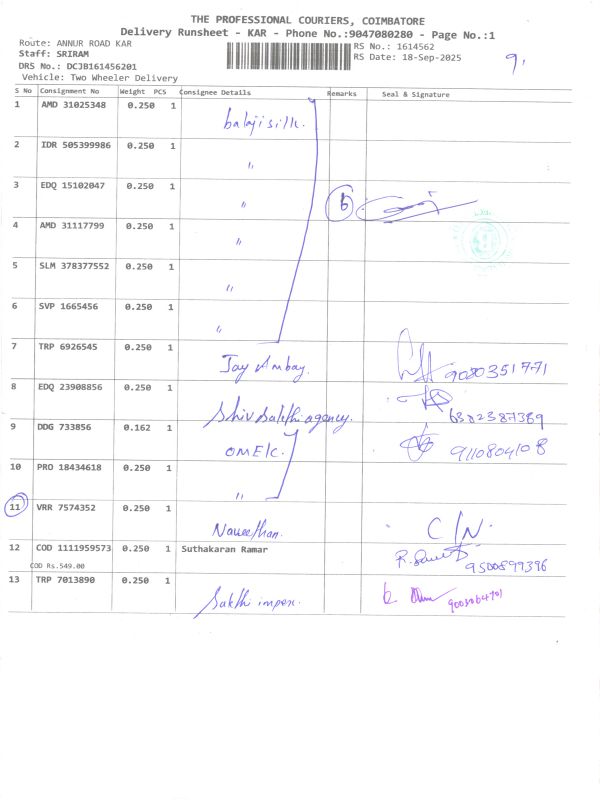 THE PROFESSIONAL COURIERS, COIMBATORE
Delivery Runsheet - KAR - Phone No.:9047080280 - Page No.:1
Route: ANNUR ROAD KAR
Staff: SRIRAM
DRS No.: DCJB161456201
Vehicle: Two Wheeler Delivery
RS No.: 1614562
RS Date: 18-Sep-2025
9,
S No Consignment No Weight PCS Consignee Details Remarks Seal & Signature
1 AMD 31025348 0.250 1
balaji silk.
2 IDR 505399986 0.250 1
"
3 EDQ 15102047 0.250 1
" 6
4 AMD 31117799 0.250 1
"
5 SLM 378377552 0.250 1
"
6 SVP 1665456 0.250 1
"
7 TRP 6926545 0.250 1
Jay Ambay. 9080351771
8 EDQ 23908856 0.250 1
Shiv sakthi agency. 6382387389
9 DDG 733856 0.162 1
OMEIC. 9110804108
10 PRO 18434618 0.250 1
"
11 VRR 7574352 0.250 1
Naveethan. C/N.
12 COD 1111959573 0.250 1 Suthakaran Ramar
COD Rs.549.00 9500899396
13 TRP 7013890 0.250 1
Sakthi impex.